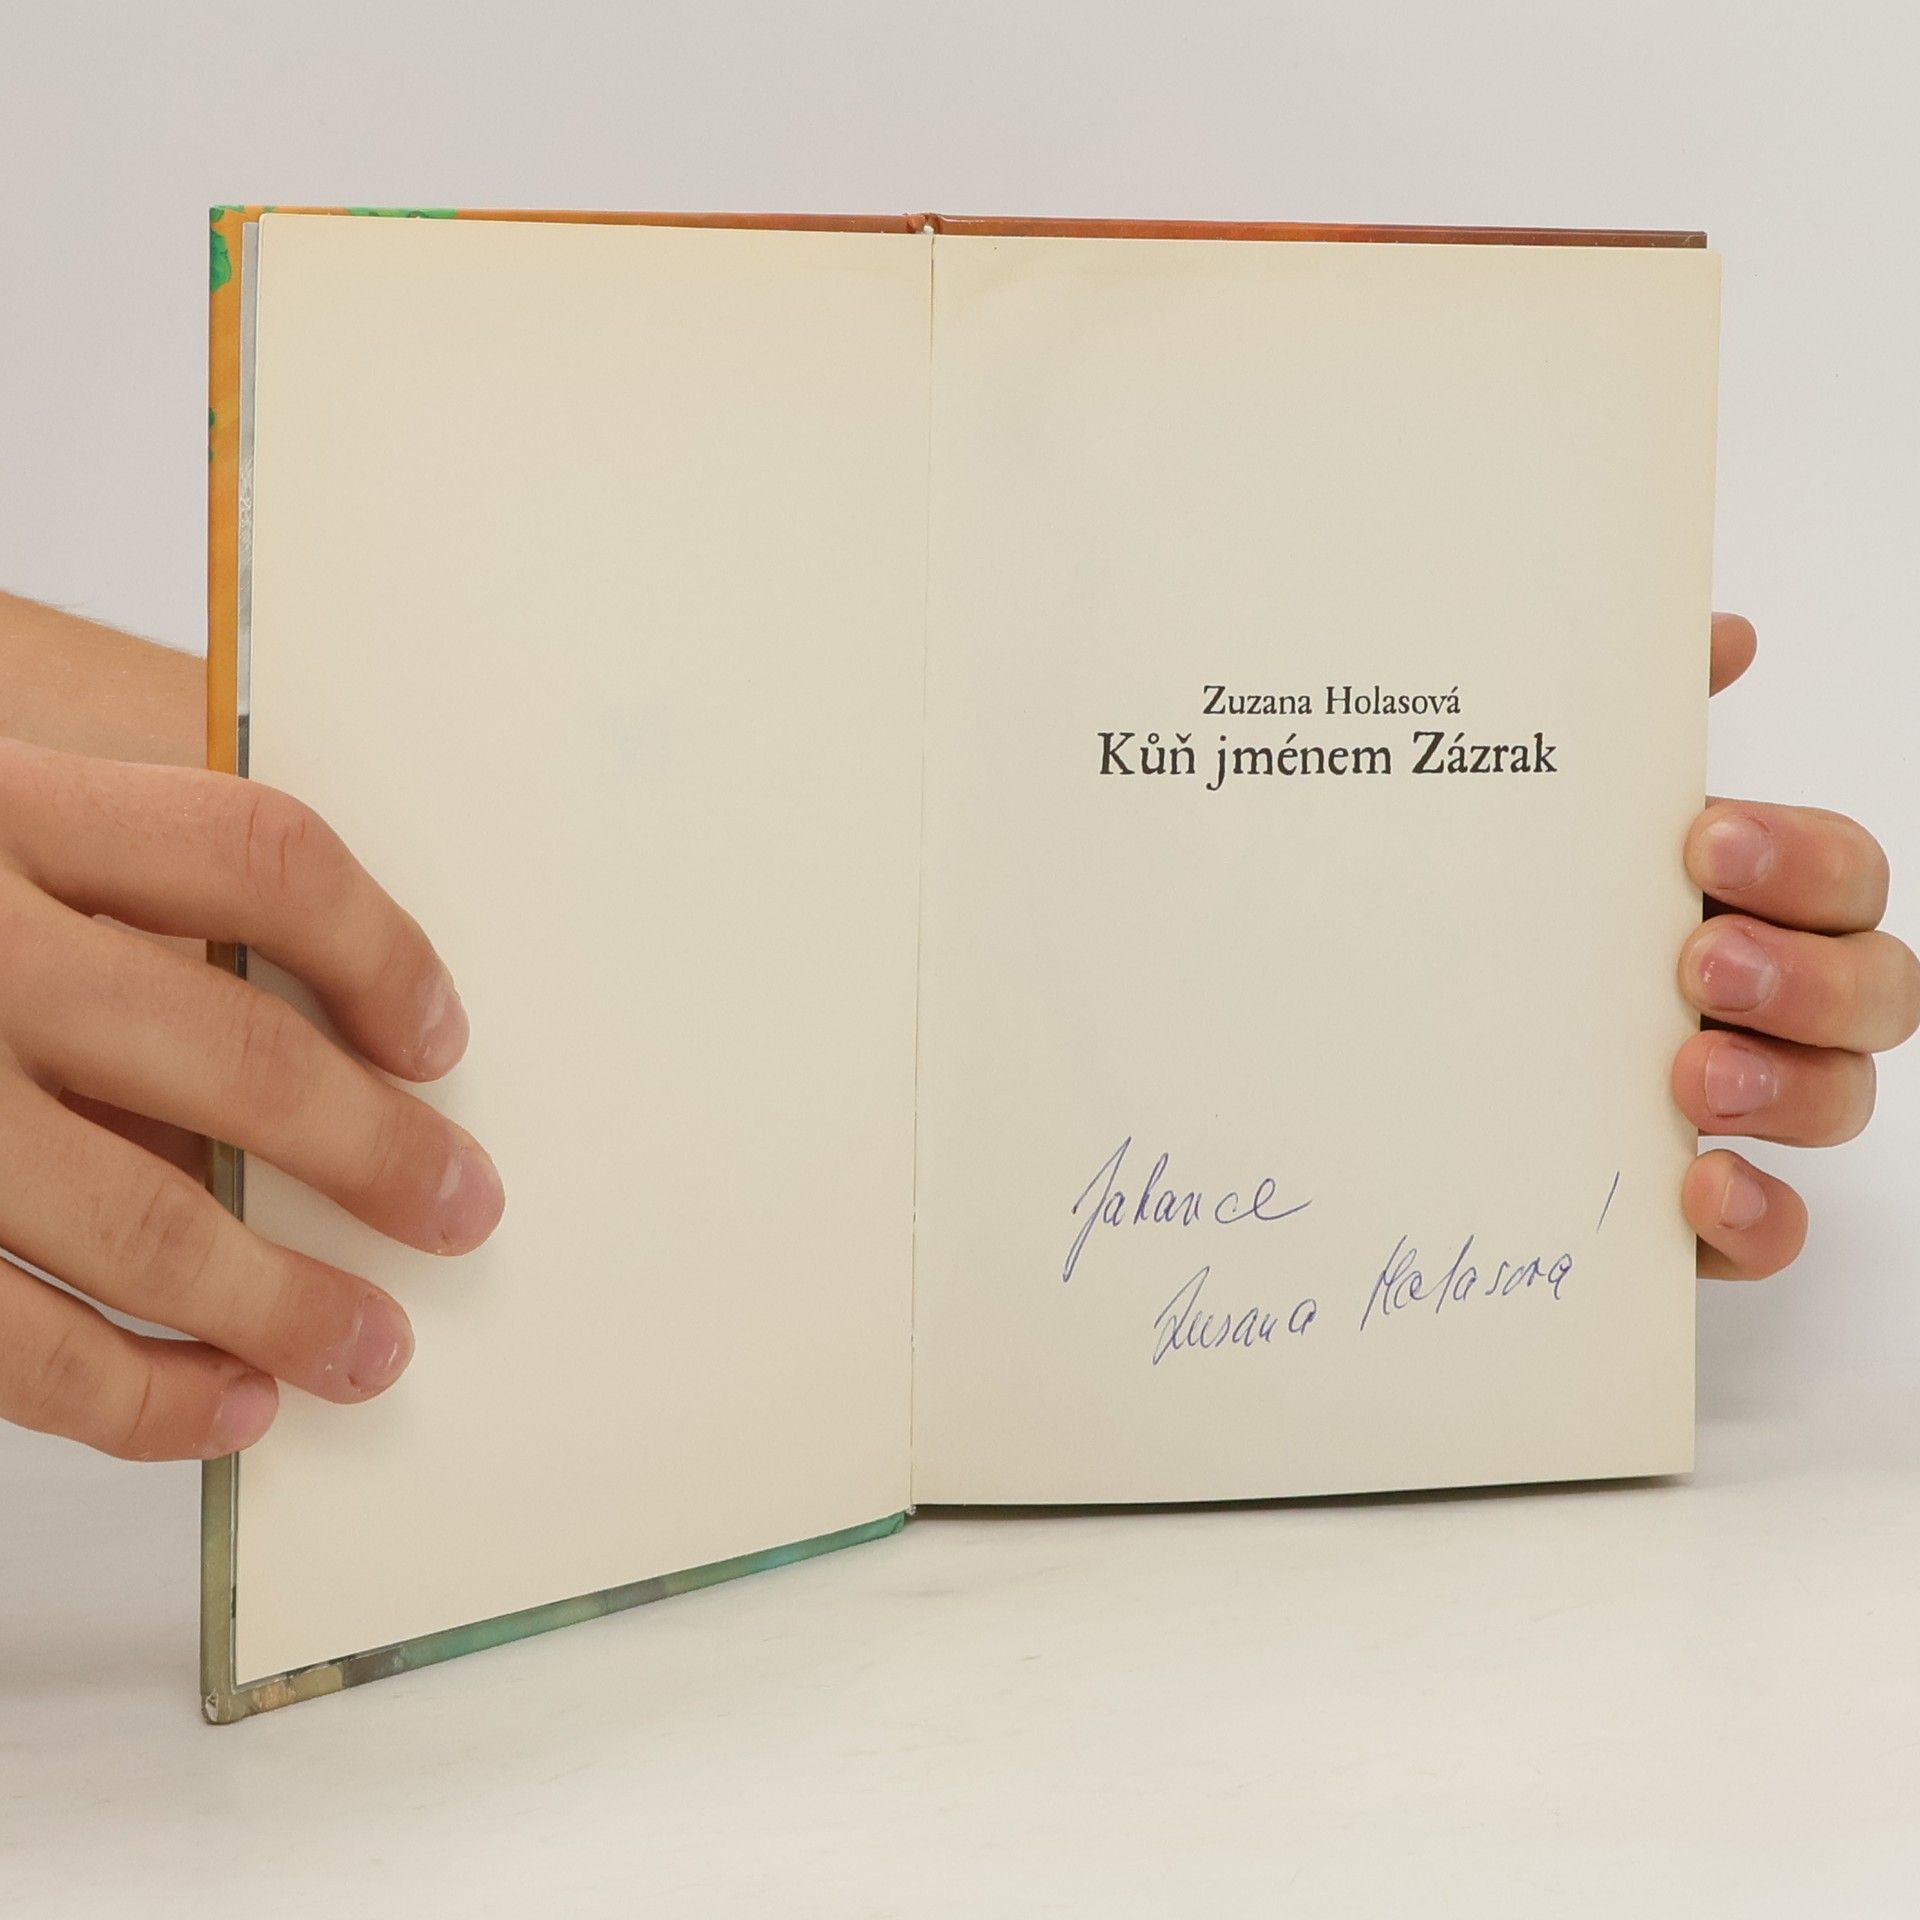 Zuzana Holasová
Kůň jménem Zázrak
Johance
Zuzana Holasová